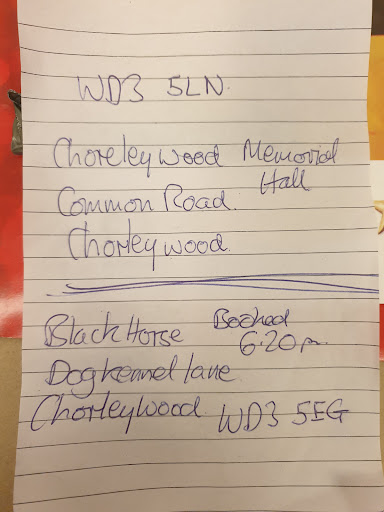 WD3 5LN.
Choreleywood Memorial
Hall
Common Road.
Chorleywood.
Black Horse Booked
6.20pm.
Dog kennel lane
Chorleywood WD3 5EG